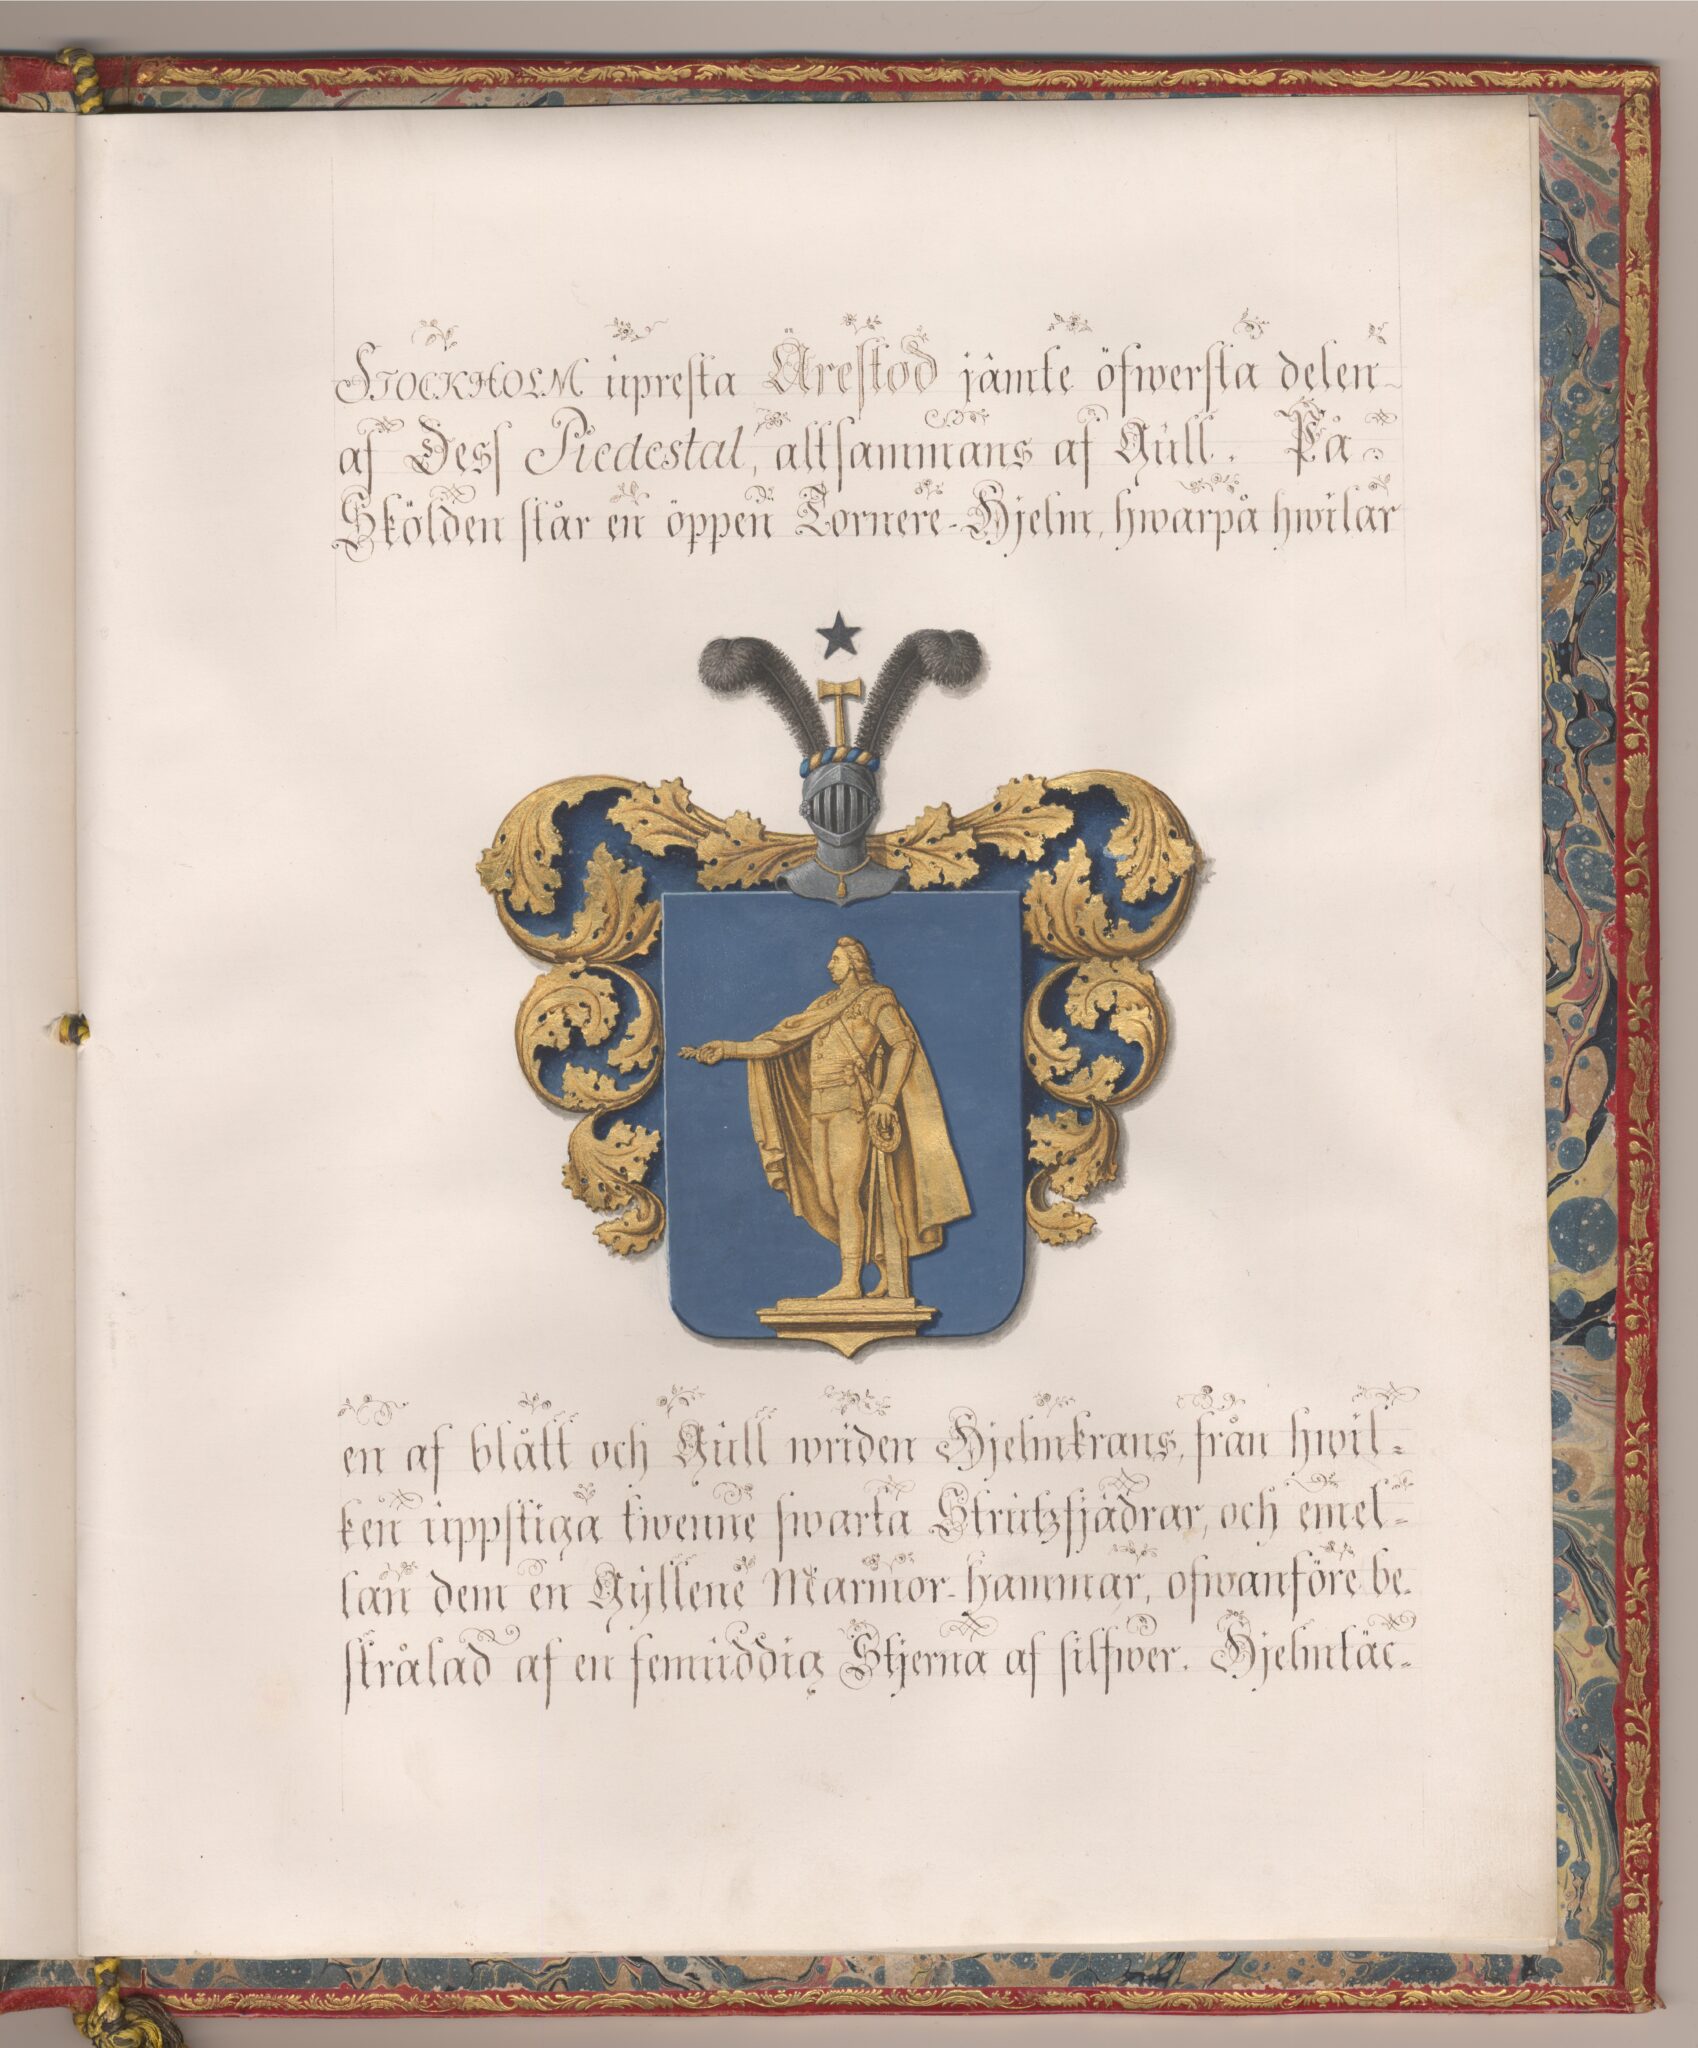 STOCKHOLM upresta Ärestod jämte öfwersta delen
af Dess Piedestal, altsammans af Gull. På
Skölden står en öppen Tornere-Hjelm, hwarpå hwilar
en af blått och Gull wriden Hjelmkrans, från hwil-
ken uppstiga twenne swarta Strutzfjädrar, och emel-
lan dem en Gyllene Marmor-hammar, ofwanföre be-
strålad af en femuddig Stjerna af silfwer. Hjelmtäc-